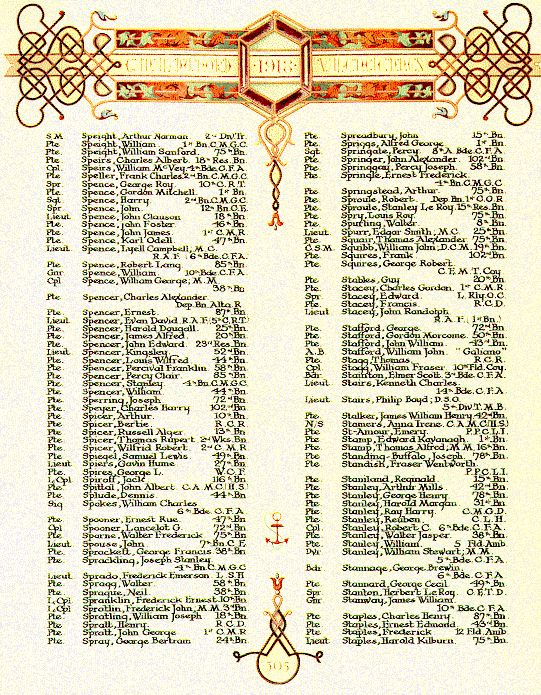 1918
S M Speight, Arthur Norman 2nd Div. Tr.
Pte. Speight, William 1st Bn. C.M.G.C.
Pte. Speight, William Sanford. 75th Bn.
Pte. Speirs, Charles Albert. 18th Res. Bn.
Cpl. Speirs, William McVey. 4th Bde. C.F.A.
Pte. Speller, Frank Charles. 2nd Bn. C.M.G.C.
Spr. Spence, George Roy. 10th C.R.T.
Pte. Spence, Gordon Mitchell. 1st Bn.
Sgt. Spence, Harry 2nd Bn. C.M.G.C.
Spr. Spence, John 12th Bn. C.E.
Lieut. Spence, John Clauson 18th Bn.
Pte. Spence, John Foster 46th Bn.
Pte. Spence, John James 1st C.M.R.
Pte. Spence, Karl Odell 47th Bn.
Lieut. Spence, Lyell Campbell, M.C.
R.A.F. (6th Bde. C.F.A.)
Pte. Spence, Robert Lang 85th Bn.
Gnr. Spence, William 10th Bde. C.F.A.
Cpl. Spence, William George; M.M.
38th Bn.
Pte. Spencer, Charles Alexander
Dep. Bn. Alta. R.
Pte. Spencer, Ernest 87th Bn.
Lieut. Spencer, Evan David R.A.F.
Pte. Spencer, Harold Dougall. 25th Bn.
Pte. Spencer, James Alfred. 20th Bn.
Pte. Spencer, John Edward 23rd Res. Bn.
Lieut. Spencer, Kingsley 52nd Bn.
Pte. Spencer, Louis Wilfred 44th Bn.
Pte. Spencer, Percival Franklin 58th Bn.
Pte. Spencer, Percy Clair 85th Bn.
Pte. Spencer, Stanley. 4th Bn. C.M.G.C.
Pte. Spencer, William 44th Bn.
Pte. Sperring, Joseph 72nd Bn.
Pte. Speyer, Charles Harry 102nd Bn.
Pte. Spicer, Arthur 10th Bn.
Pte. Spicer, Bertie R.C.R.
Pte. Spicer, Russell Alger 13th Bn.
Pte. Spicer, Thomas Rupert 2nd Wks. Bn.
Pte. Spicer, Wilfrid Robert 2nd C.M.R.
Pte. Spiegel, Samuel Lewis 49th Bn.
Lieut. Spiers, Gavin Hume 27th Bn.
Pte. Spires, George L. W.O.R.
L.Cpl. Spiroff, Jack 116th Bn.
Pte. Spittal, John Albert C.A.M.C.(H.S.)
Pte. Splude, Dennis 44th Bn.
Sig. Spokes, William Charles
6th Bde. C.F.A.
Pte. Spooner, Ernest Rue 47th Bn.
Cpl. Spooner, Lancelot G. 72nd Bn.
Pte. Sparne, Walter Frederick 75th Bn.
Lieut. Spouse, John 7th Bn. C.E.
Pte. Sprockett, George Francis 38th Bn.
Pte. Sprackling, Joseph Stanley
4th Bn. C.M.G.C.
Lieut. Sprado, Frederick Emerson L.S.H.
Pte. Spragg, Walter 58th Bn.
Pte. Sprague, Neil 38th Bn.
L.Cpl. Spranklin, Frederick Ernest. 10th Bn.
L.Cpl. Spratlin, Frederick John, M.M. 3rd Bn.
Pte. Spratling, William Joseph 18th Bn.
Pte. Spratt, Henry R.C.D.
Pte. Spratt, John George 1st C.M.R.
Pte. Spray, George Bertram 24th Bn.
Pte. Spreadbury, John 15th Bn.
Pte. Spriggs, Alfred George 1st Bn.
Sgt. Springate, Percy. 8th A. Bde. C.F.A.
Pte. Springer, John Alexander. 102nd Bn.
Pte. Springgay, Percy Joseph. 58th Bn.
Pte. Springle, Ernest Frederick
4th Bn. C.M.G.C.
Pte. Springstead, Arthur. 75th Bn.
Pte. Sproule, Robert. Dep. Bn. 1st C.O.R.
Pte. Sproule, Stanley Le Roy. 15th Res. Bn.
Pte. Spry, Louis Roy 75th Bn.
Pte. Spurling, Walter 8th Bn.
Lieut. Spurr, Edgar Smith; M.C. 25th Bn.
Pte. Squair, Thomas Alexander 75th Bn.
C.S.M. Squibb, William John; D.C.M. 19th Bn.
Pte. Squires, Frank 102nd Bn.
Pte. Squires, George Robert
C.E.M.T. Coy
Pte. Stables, Guy 20th Bn.
Pte. Stacey, Charles Gordon. 1st C.M.R.
Spr. Stacey, Edward L. Rly. O.C.
Pte. Stacey, Francis R.C.D.
Lieut. Stacey, John Randolph
R.A.F. (1st Bn.)
Pte. Stafford, George 72nd Bn.
Pte. Stafford, Gordon Morcome. 50th Bn.
Pte. Stafford, John William 43rd Bn.
A.B. Stafford, William John. "Galiano"
Pte. Stagg, Thomas R.C.R.
Cpl. Stagg, William Fraser 10th Fld. Coy.
Bdr. Stainton, Elmer Scott. 3rd Bde. C.F.A.
Lieut. Stairs, Kenneth Charles.
14th Bde. C.F.A.
Lieut. Stairs, Philip Boyd; D.S.O.
5th Div. T.M.B.
Pte. Stalker, James William Henry. 42nd Bn.
N/S Stamers, Anna Irene. C.A.M.C.(H.S.)
Pte. St-Amour, Emery. P.P.C.L.I.
Pte. Stamp, Edward Kavanagh. 1st Bn.
Pte. Stamp, Thomas Alfred; M.M. 16th Bn.
Pte. Standing, Buffalo Joseph. 78th Bn.
Pte. Standish, Fraser Wentworth.
P.P.C.L.I.
Pte. Staniland, Reginald 15th Bn.
Pte. Stanley, Arthur Mills 42nd Bn.
Pte. Stanley, George Henry 78th Bn.
Pte. Stanley, Harold Morgan 31st Bn.
Pte. Stanley, Ray Harry C.M.G.D.
Pte. Stanley, Reuben C.L.H.
Cpl. Stanley, Robert C. 6th Bde. C.F.A.
Pte. Stanley, Walter Jasper 38th Bn.
Pte. Stanley, William 5 Fld. Amb
Dvr. Stanley, William Stewart; M.M.
5th Bde. C.F.A.
Bdr. Stannage, George Brewin.
6th Bde. C.F.A.
Pte. Stannard, George Cecil 49th Bn.
Spr. Stanton, Herbert Le Roy. C.E.T.D.
Gnr. Stanway, James William.
10th Bde. C.F.A.
Pte. Staples, Charles Henry 87th Bn.
Pte. Staples, Ernest Edmond 43rd Bn.
Pte. Staples, Frederick 12 Fld. Amb
Lieut. Staples, Harold Kilburn. 75th Bn.
505